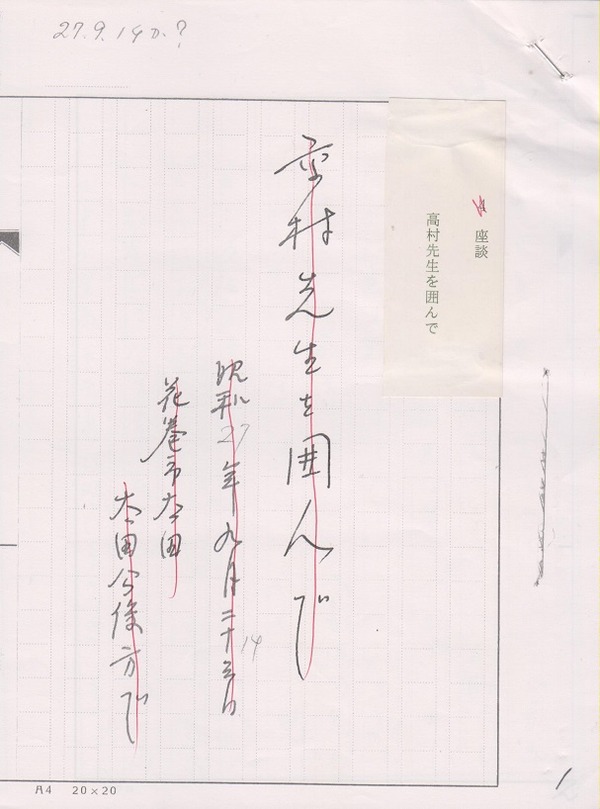 27.9.14日.?
座談
高村先生を囲んで
高村先生を囲んで
昭和27年九月二十三日
14
花巻市太田
太田今俊方で
1
A4 20×20